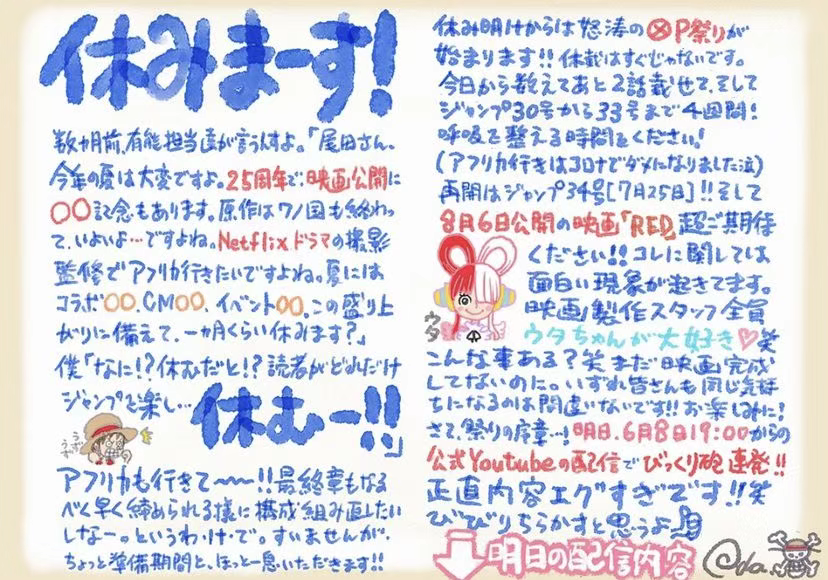 休みまーす!
数ヶ月前、有能担当達が言うんすよ。「尾田さん、
今年の夏は大変ですよ。25周年で、映画公開に
〇〇記念もあります。原作はワノ国も終わっ
て、いよいよ…ですよね。Netflixドラマの撮影
監修でアフリカ行きたいですよね。夏には
コラボ〇〇、CM〇〇、イベント〇〇。この盛り上
がりに備えて、一ヵ月くらい休みます?」
僕「なに!?休むだと!?読者がどれだけ
ジャンプを楽し…休むー!!」
うずうず
アフリカも行きて〜〜!!最終章もなる
べく早く締められる様に構成組み直したい
しなー。というわ・け・で。すいませんが、
ちょっと準備期間と、ほっと一息いただきます!!
休み明けからは怒涛の㋨P祭りが
始まります!!休載はすぐじゃないです。
今日から数えてあと2話載せて、そして
ジャンプ30号から33号まで4週間!
呼吸を整える時間をください!
(アフリカ行きはコロナでダメになりました泣)
再開はジャンプ34号[7月25日]!!そして
8月6日公開の映画「RED」超ご期待
ください!!コレに関しては
面白い現象が起きてます。
映画製作スタッフ全員
ウタ
ウタちゃんが大好き♡笑
こんな事ある?笑 まだ映画完成
してないのに。いずれ皆さんも同じ気持
ちになるのは間違いないです!!お楽しみに!
さて、祭りの序章…!明日、6月8日19:00からの
公式Youtubeの配信でびっくり砲連発!!
正直内容エグすぎです!!笑
びびりちらかすと思うよ
明日の配信内容
Oda.